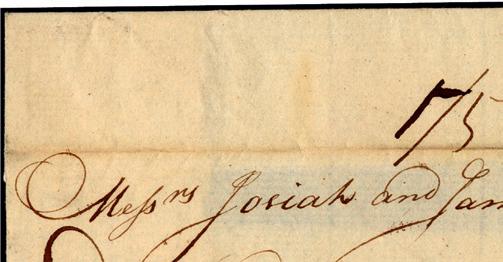 1/5
Messrs Josiah and Jam